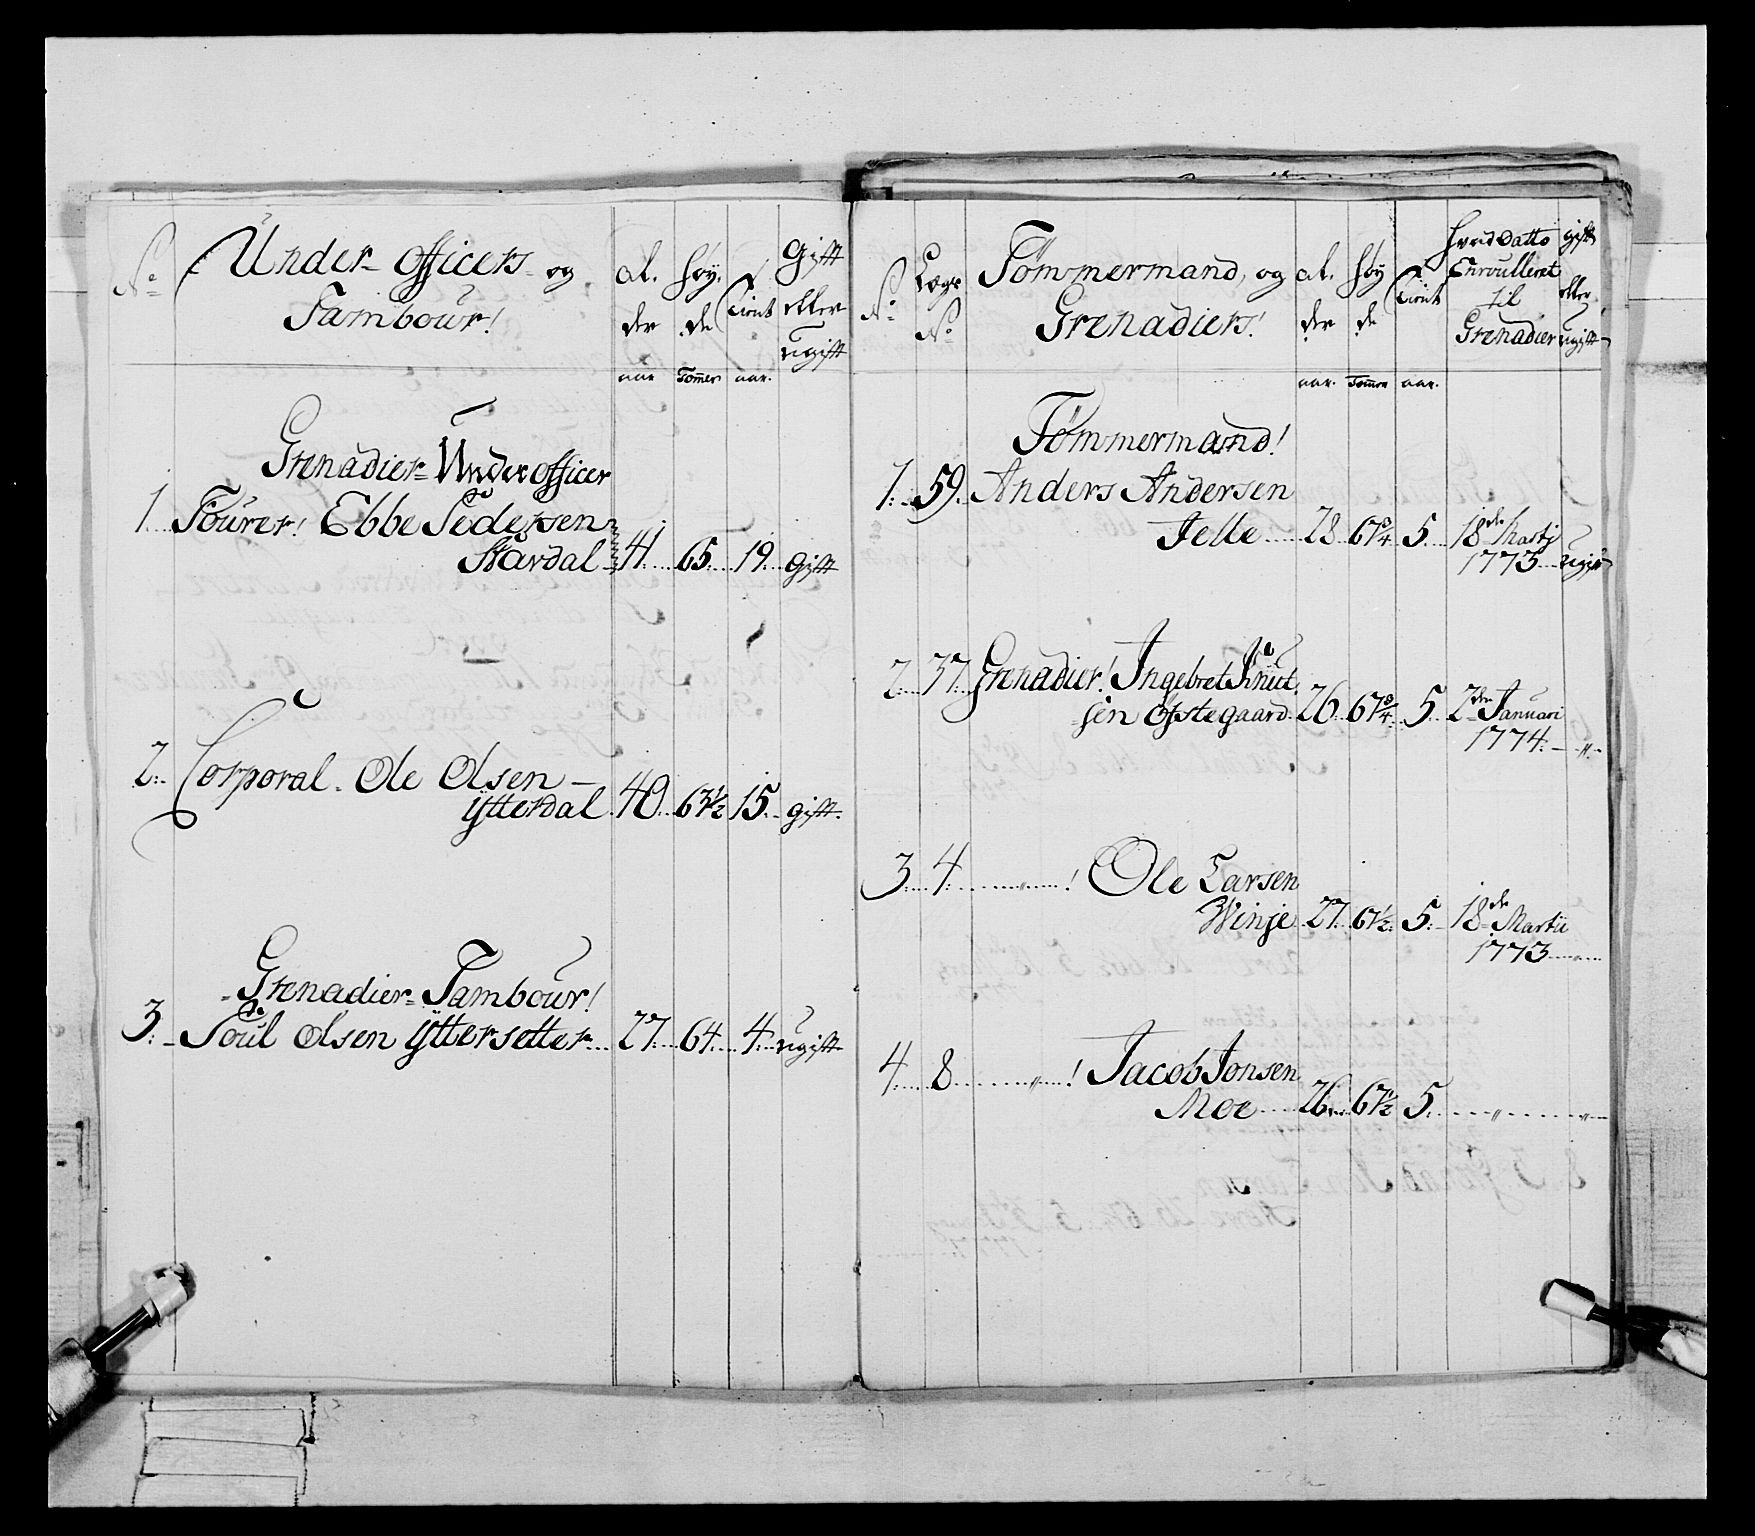 No
Under-Officers og
Tambour!
al.
der
aar
høy.
de
Tomer
Tient
aar.
Gift
eller
ugift
Grenadier-Underofficer
1. Fourer! Ebbe Pedersen
Stardal 41. 65. 19. gift
2. Corporal. Ole Olsen
Ytterdal 40. 63½ 15. gift.
Grenadier-Tambour!
3. Poul Olsen Yttersetter 27. 64. 4. ugift
No
Legs
No
Tømmermand, og
Grenadiers!
al.
der
aar.
høy
de
Tommer
Tient
aar.
hvad Datto
Enroulleret
til
Grenadier
gift
eller
ugift
Tømmermand!
1. 59. Anders Andersen
Jelle 28 67¾ 5. 18de Martj
1773 ugift
2. 37. Grenadier! Ingebret Knut
sen Opstegaard. 26. 67¾ 5. 2den Januari
1774. „
3. 4. „ ! Ole Larsen
Winje 27. 67½ 5. 18de Martii
1773 „
4. 8. „ ! Jacob Jonsen
Moe 26. 67½ 5. „ „